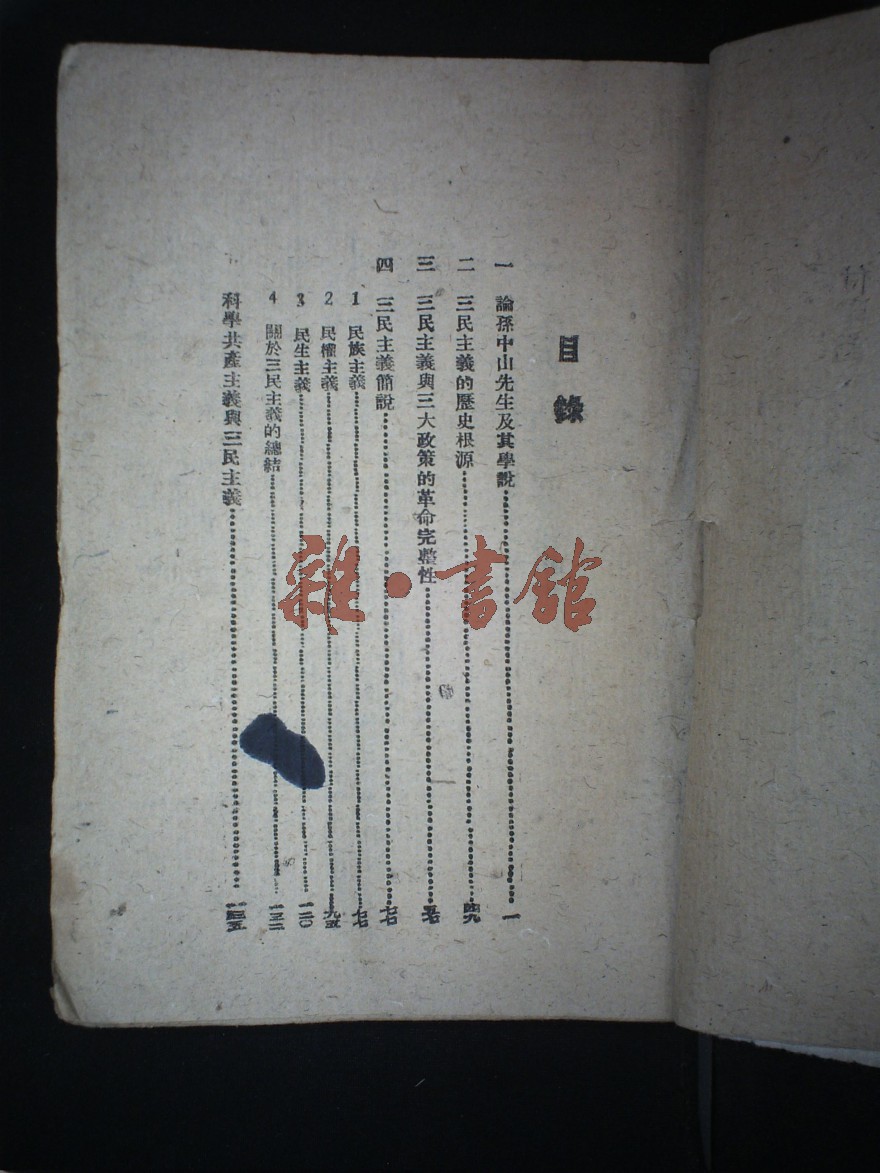 目錄
一 論孫中山先生及其學說 一
二 三民主義的歷史根源 四九
三 三民主義與三大政策的革命完整性
四 三民主義簡說 七七
1 民族主義 七七
2 民權主義 九五
3 民生主義 一二〇
4 關於三民主義的總結
科學共產主義與三民主義
雜·書館